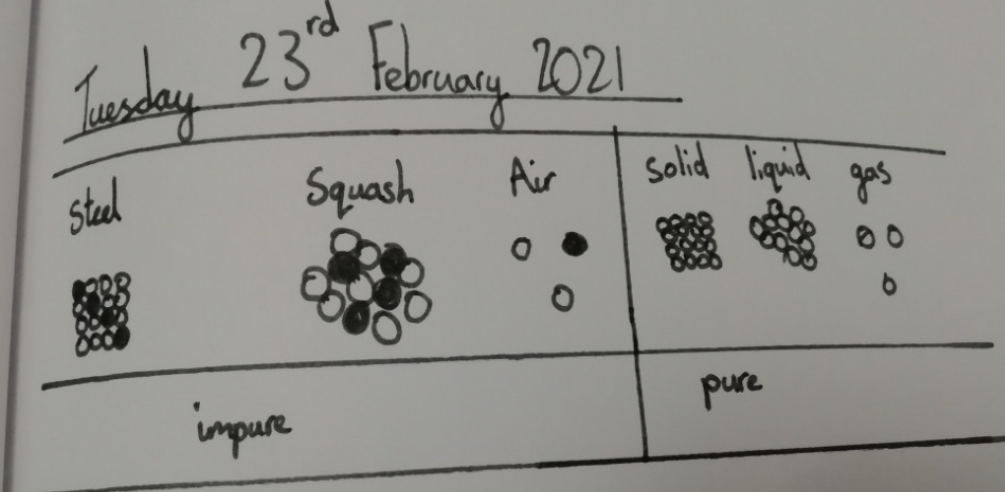 Tuesday 23rd February 2021
Steel Squash Air solid liquid gas
impure pure